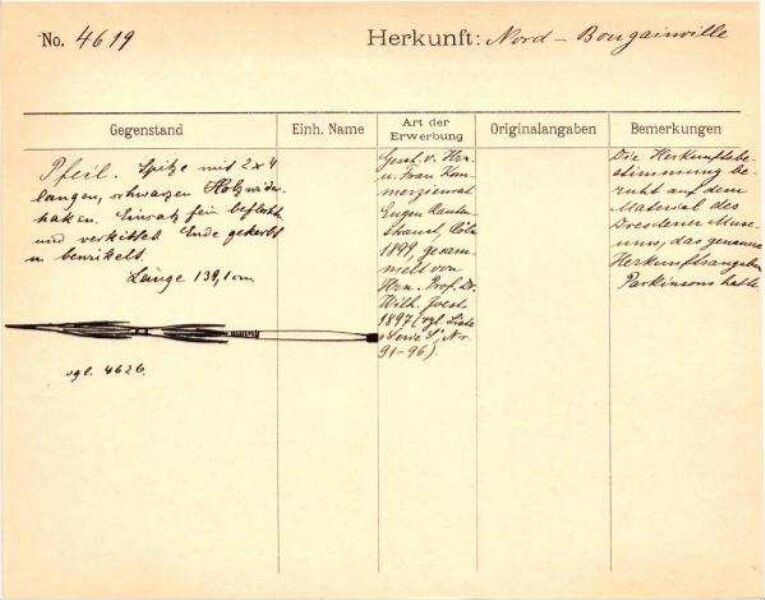 No. 4619
Herkunft: Nord - Bougainville
Gegenstand
Einh. Name
Art der
Erwerbung
Originalangaben
Bemerkungen
Pfeil. Spitze mit 2 x 4
langen, schwarzen Holzwider-
haken. Einsatz fein beflochten
und verkittet. Ende gekerbt
u. bewickelt.
Länge 139,1 cm
vgl. 4626.
Gesch. v. Hrn.
u. Frau Kom-
merzienrat
Eugen Rauten-
strauch, Cöln
1899, gesam-
melt von
Hrn. Prof. Dr.
Wilh. Joest
1897 (vgl. Liste
Serie S, Nr.
91-96).
Die Herkunftsbe-
stimmung be-
ruht auf dem
Material des
Dresdener Muse-
ums, das genaue
Herkunftsangaben
Parkinsons hatte